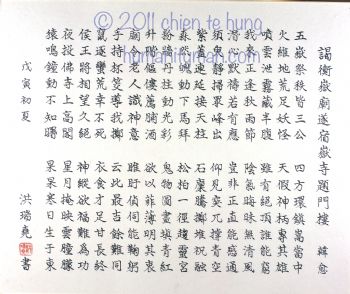 © 2011 chien te hung
humanityman.com
謁衡嶽廟遂宿嶽寺題門樓 韓愈
五嶽祭秩皆三公 四方環鎮嵩當中
火維地荒足妖怪 天假神柄專其雄
噴雲泄霧藏半腹 雖有絕頂誰能窮
我來正逢秋雨節 陰氣晦昧無清風
潛心默禱若有應 豈非正直能感通
須臾靜掃眾峰出 仰見突兀撐青空
紫蓋連延接天柱 石廩騰擲堆祝融
森然魄動下馬拜 松柏一逕趨靈宮
粉牆丹柱動光彩 鬼物圖畫填青紅
升階傴僂薦脯酒 欲以菲薄明其衷
廟令老人識神意 睢盱偵伺能鞠躬
手持杯筊導我擲 云此最吉餘難同
竄逐蠻荒幸不死 衣食才足甘長終
侯王將相望久絕 神縱欲福難為功
夜投佛寺上高閣 星月掩映雲朣朧
猿鳴鐘動不知曙 杲杲寒日生于東
戊寅初夏 洪瑞堯 書